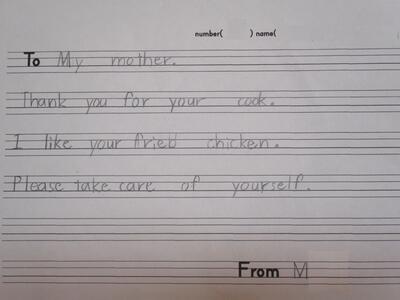 number( ) name(
To My mother.
Thank you for your cook.
I like your fried chicken.
Please take care of yourself.
From M